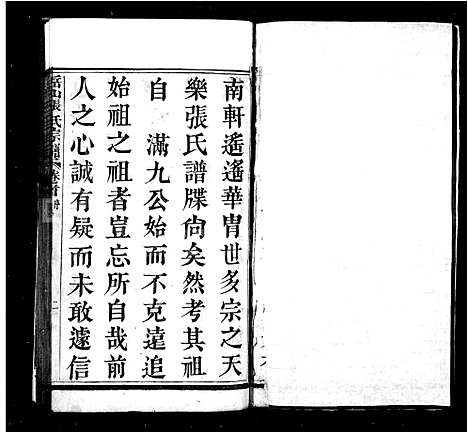 南軒遙遙華胄世多宗之天
樂張氏譜牒尙矣然考其祖
自 滿九公始而不克遠追
始祖之祖者豈忘所自哉前
人之心誠有疑而未敢遽信
張氏宗譜 卷首
二